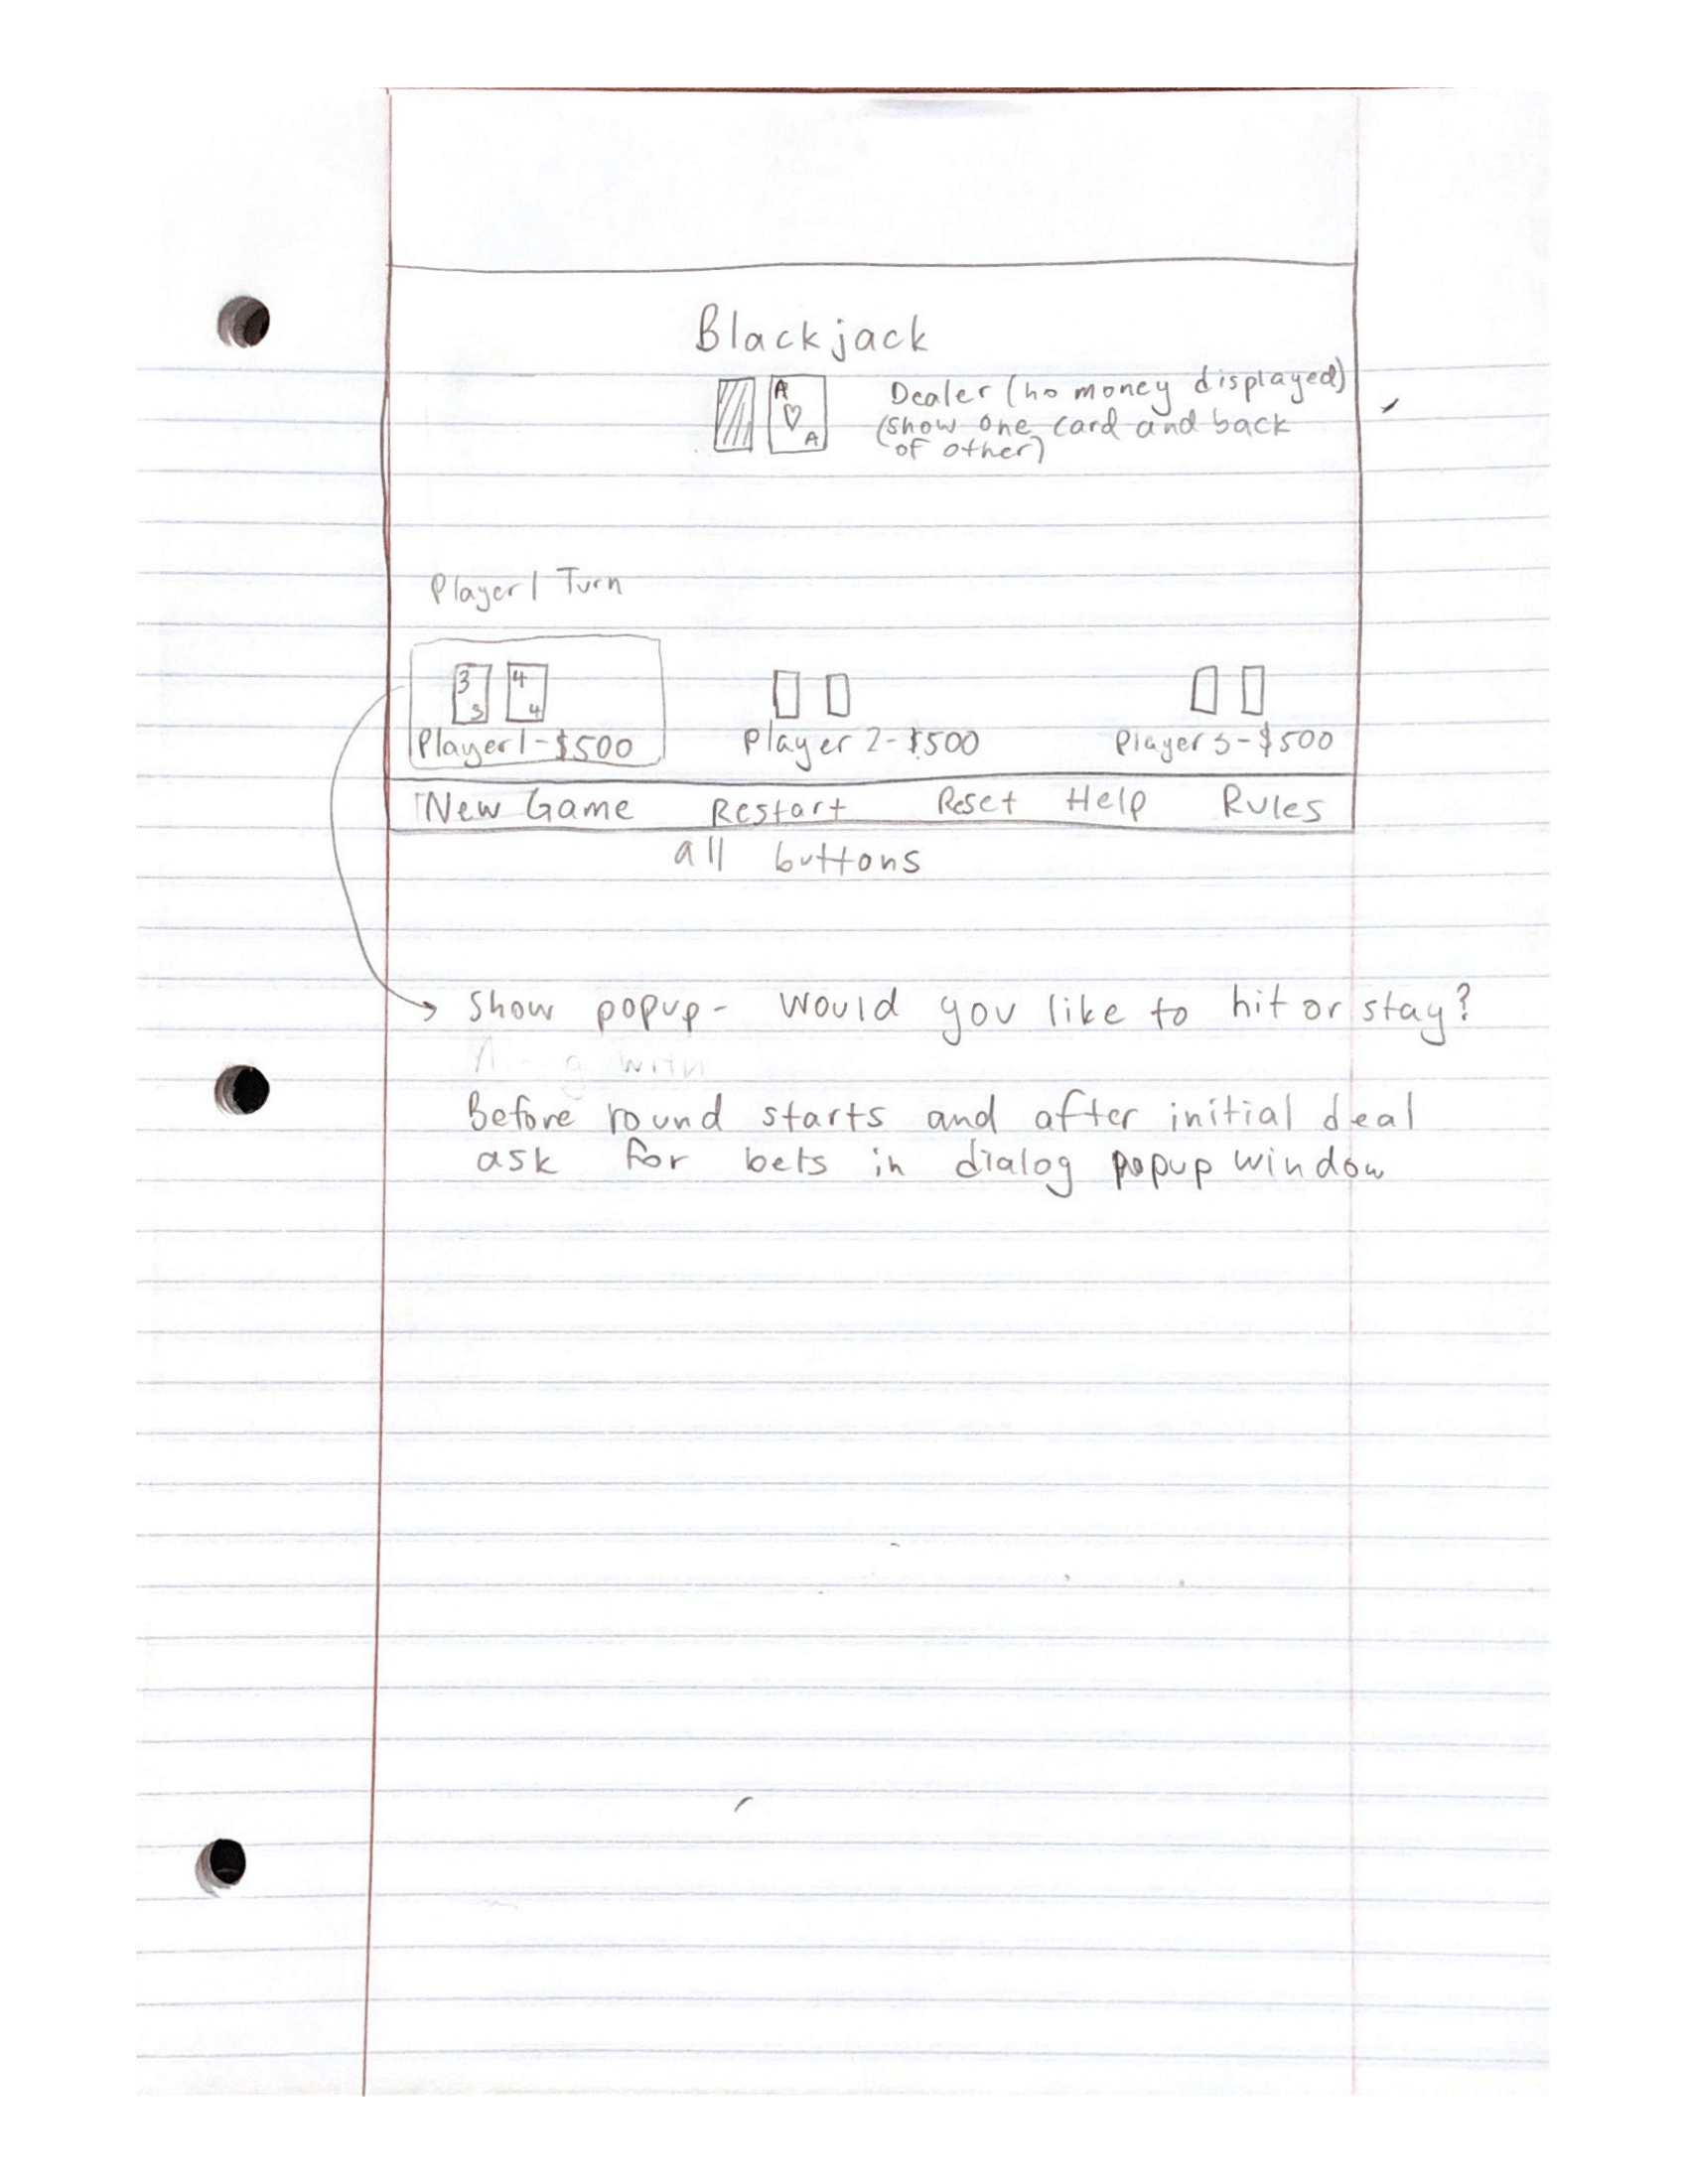 Blackjack
A
A
Dealer (no money displayed)
(show one card and back
of other)
Player 1 Turn
3
3
4
4
Player 1 - $500
Player 2 - $500
Player 3 - $500
New Game Restart Reset Help Rules
all buttons
Show popup - Would you like to hit or stay?
with
Before round starts and after initial deal
ask for bets in dialog popup window